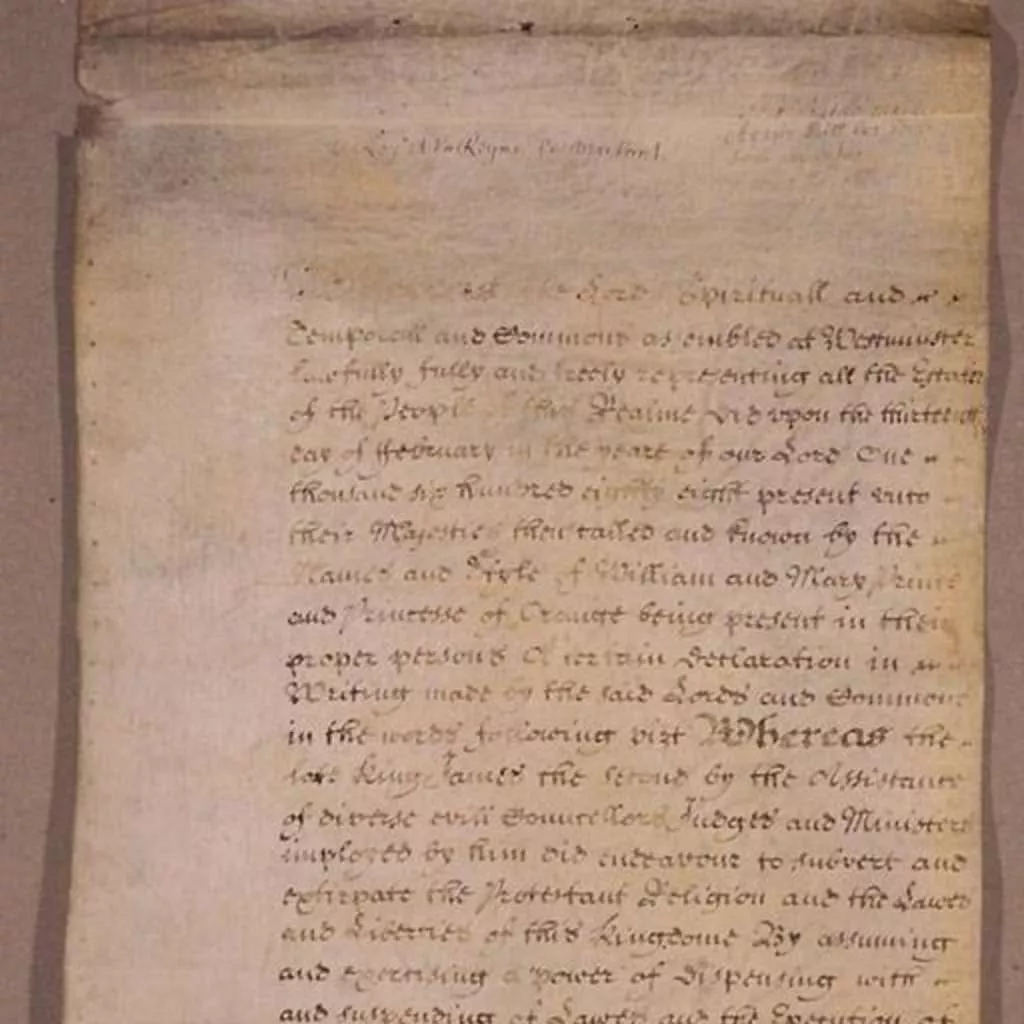 Le Roy & la Reyne le veulent
Lords Spirituall and
Temporall and Commons assembled at Westminster
lawfully fully and freely representing all the Estates
of the People of this Realme did upon the thirteenth
day of ffebruary in the yeare of our Lord One
thousand six hundred eighty eight present unto
their Majesties then called and known by the
Names and Style of William and Mary Prince
and Princesse of Orange being present in their
proper persons A certain Declaration in
Writing made by the said Lords and Commons
in the words following vizt Whereas the
late King James the second by the Assistance
of diverse evill Councellors Judges and Ministers
imployed by him did endeavour to subvert and
extirpate the Protestant Religion and the Lawes
and Liberties of this Kingdome By assuming
and exercising a power of dispensing with
and suspending of Lawes and the Execution of